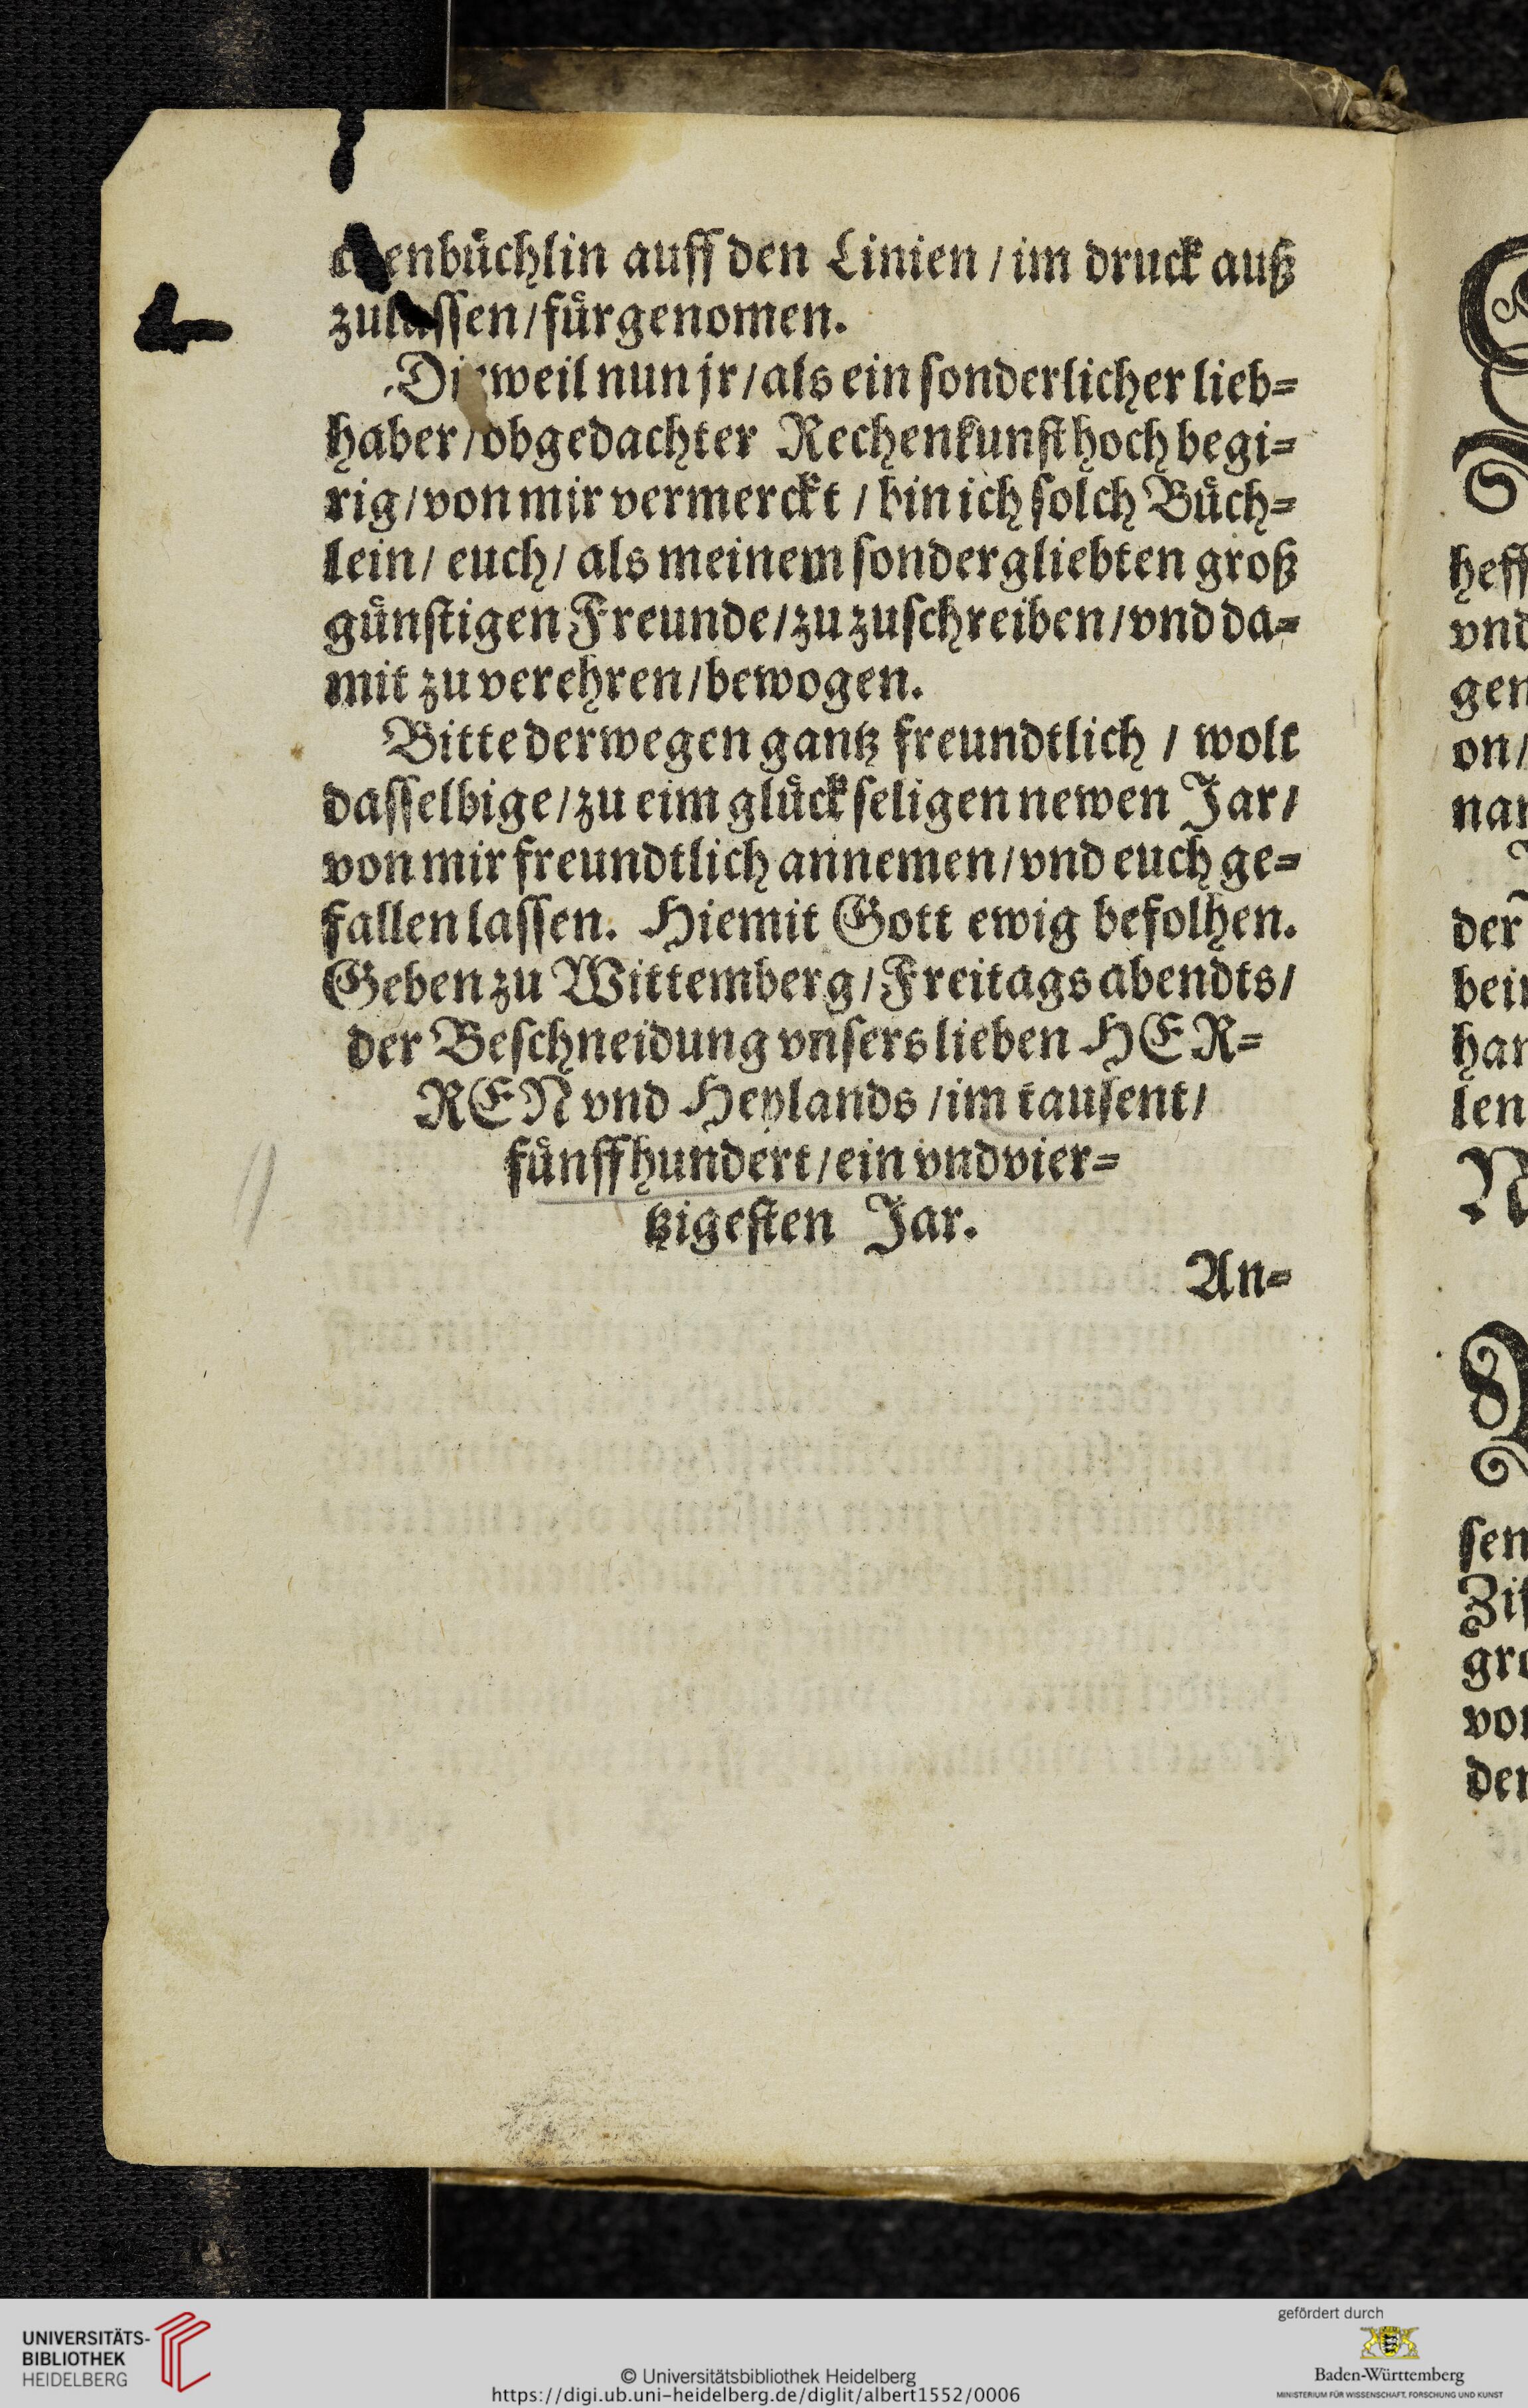 c[h]enbüchlin auff den Linien / im druck auß
zulassen / fürgenomen.
Dieweil nun jr / als ein sonderlicher lieb=
haber / obgedachter Rechenkunst hoch begi=
rig / von mir vermerckt / bin ich solch Büch=
lein / euch / als meinem sondergliebten groß
günstigen Freunde / zu zuschreiben / vnd da=
mit zu verehren / bewogen.
Bitte derwegen gantz freundtlich / wolt
dasselbige / zu eim glückseligen newen Jar /
von mir freundtlich annemen / vnd euch ge=
fallen lassen. Hiemit Gott ewig befolhen.
Geben zu Wittemberg / Freitags abendts /
der Beschneidung vnsers lieben HER=
REN vnd Heylands / im tausent /
fünffhundert / ein vnd vier=
tzigesten Jar.
An=
heff
vnd
gen
on /
nar
der
bein
han
len
N
sen
Zif
gro
von
der
UNIVERSITÄTS-
BIBLIOTHEK
HEIDELBERG
© Universitätsbibliothek Heidelberg
https://digi.ub.uni-heidelberg.de/diglit/albert1552/0006
gefördert durch
Baden-Württemberg
MINISTERIUM FÜR WISSENSCHAFT, FORSCHUNG UND KUNST